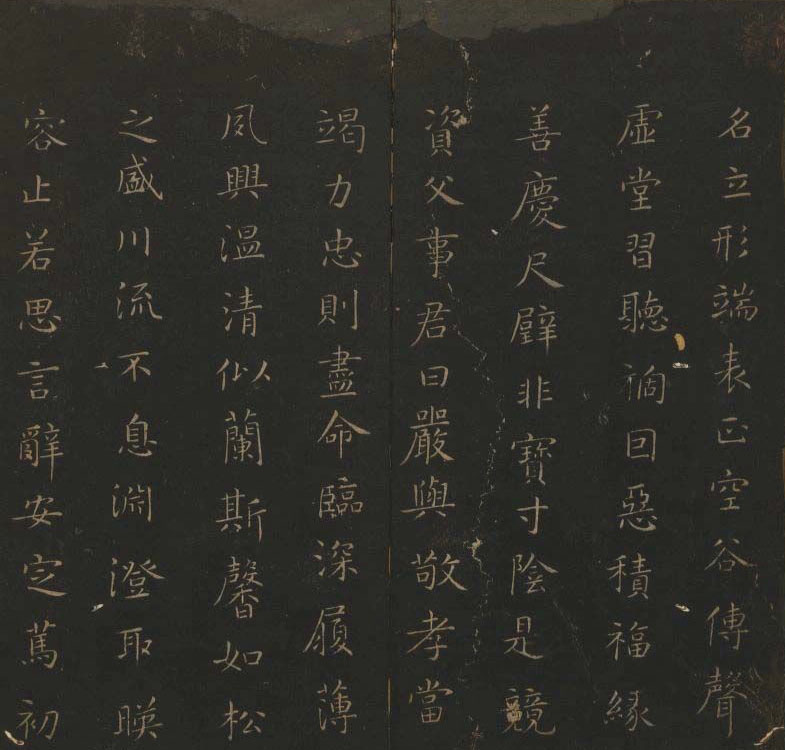 名立形端表正空谷傳聲
虛堂習聽禍因惡積福緣
善慶尺璧非寶寸陰是競
資父事君曰嚴與敬孝當
竭力忠則盡命臨深履薄
夙興溫清似蘭斯馨如松
之盛川流不息淵澄取暎
容止若思言辭安定篤初